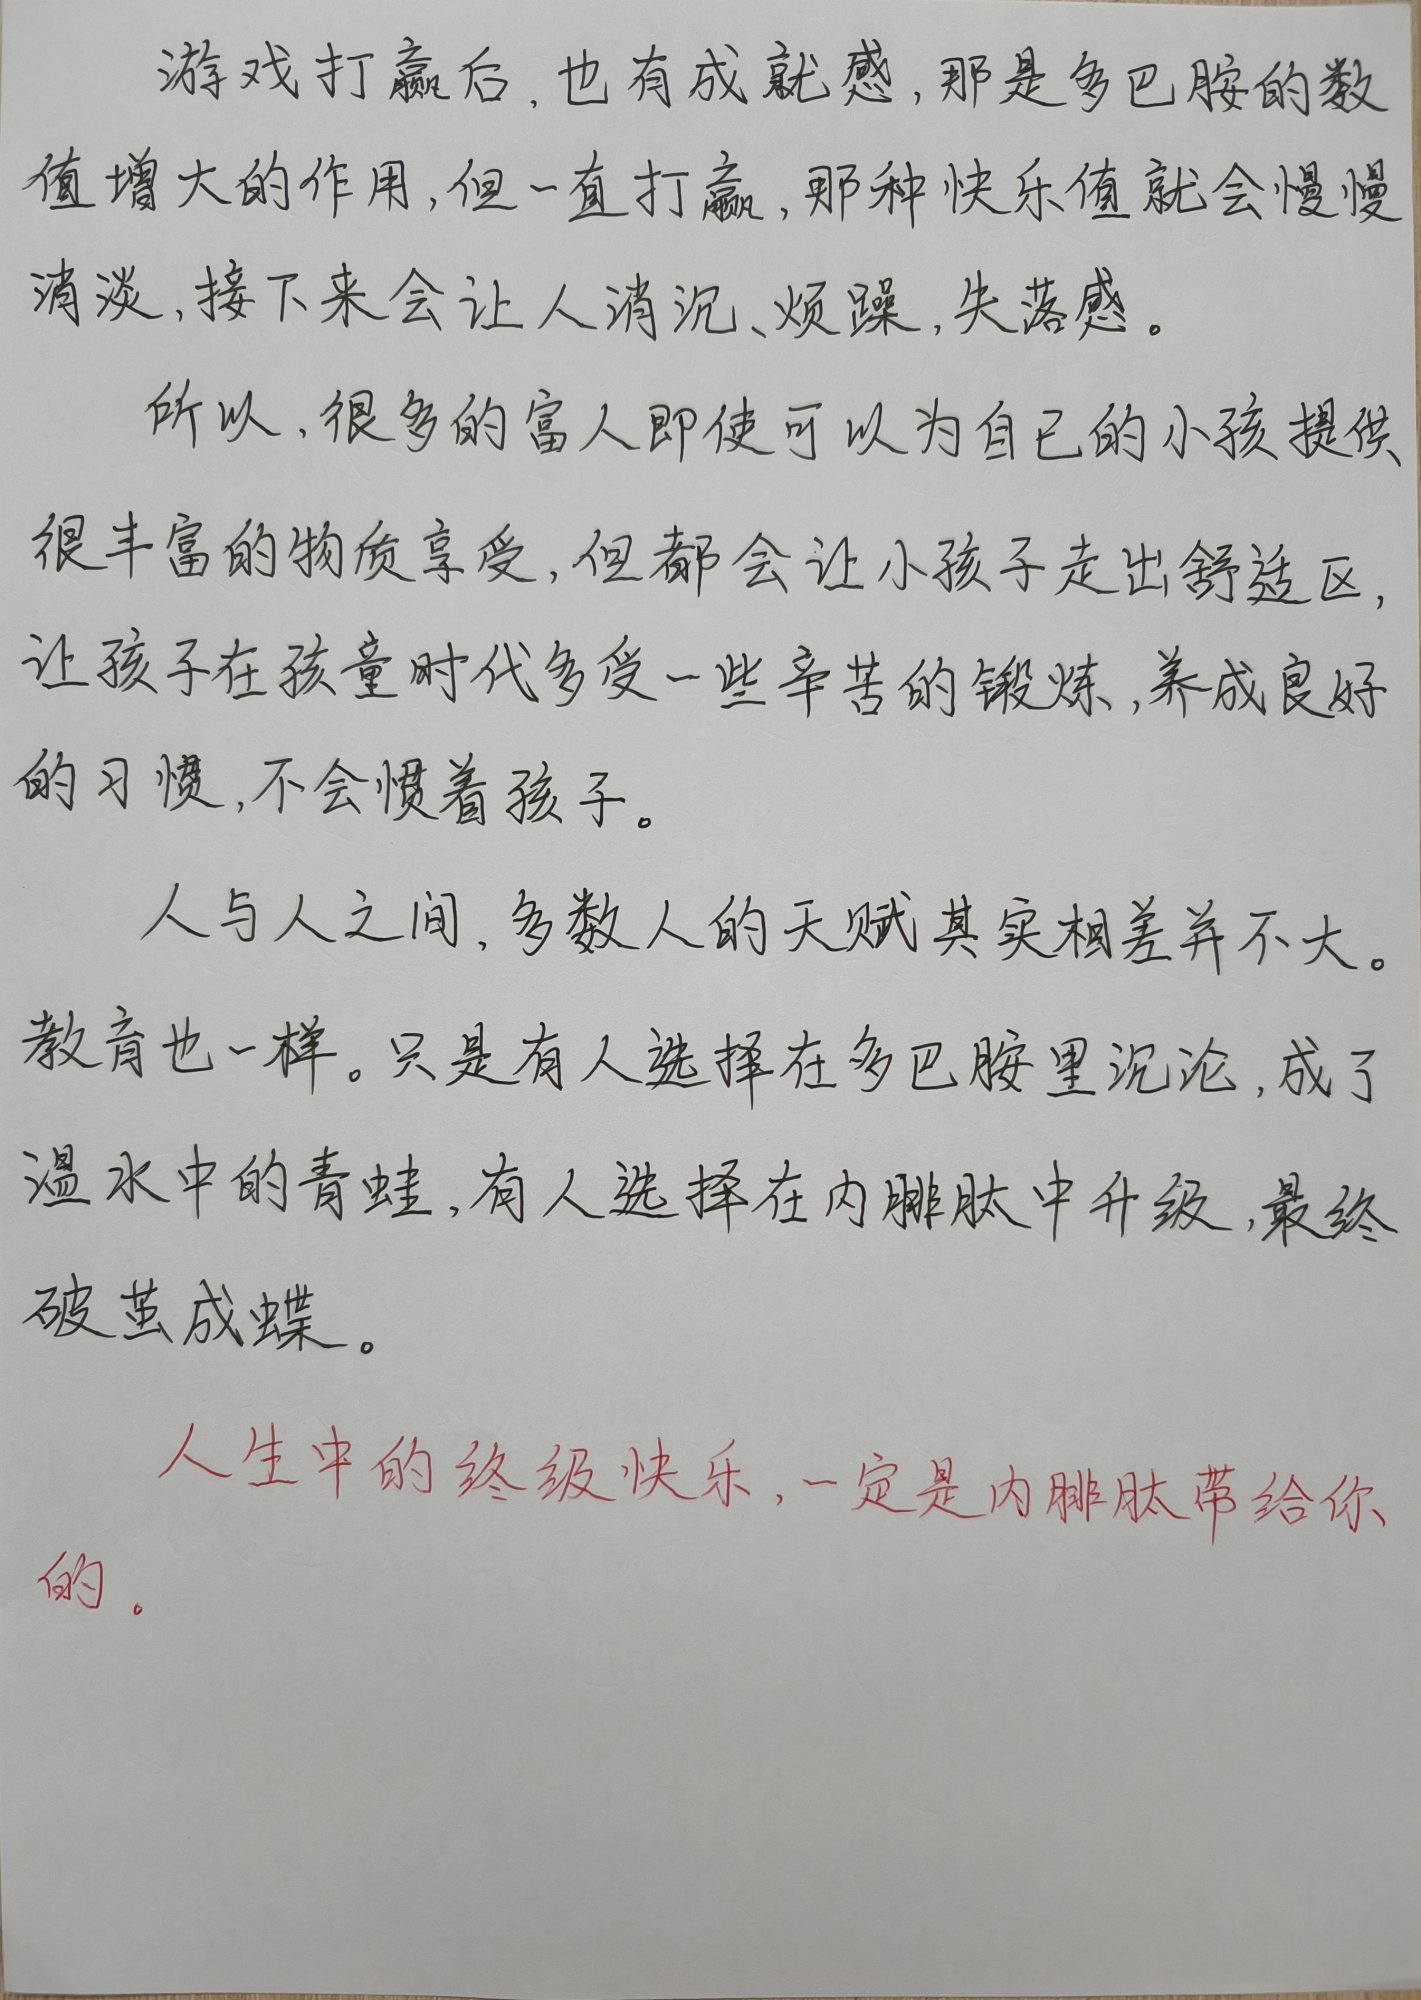 游戏打赢后,也有成就感,那是多巴胺的数
值增大的作用,但一直打赢,那种快乐值就会慢慢
消淡,接下来会让人消沉、烦躁,失落感。
所以,很多的富人即使可以为自己的小孩提供
很丰富的物质享受,但都会让小孩子走出舒适区,
让孩子在孩童时代多受一些辛苦的锻炼,养成良好
的习惯,不会惯着孩子。
人与人之间,多数人的天赋其实相差并不大。
教育也一样。只是有人选择在多巴胺里沉沦,成了
温水中的青蛙,有人选择在内腓肽中升级,最终
破茧成蝶。
人生中的终级快乐,一定是内腓肽带给你
的。